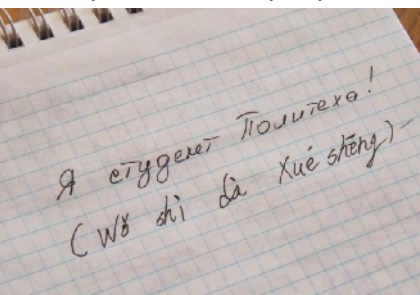 Я студент Политеха!
(Wǒ shì dà xué shēng)